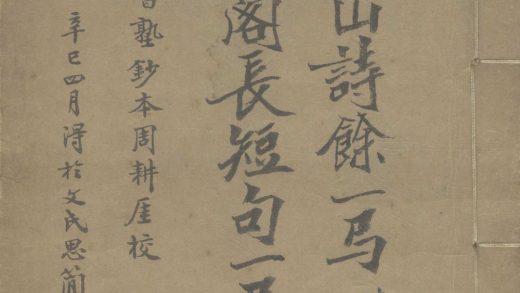 山詩餘一㢧
閣長短句一
塾鈔本周耕厓校
辛巳四月淂於文氏思簡